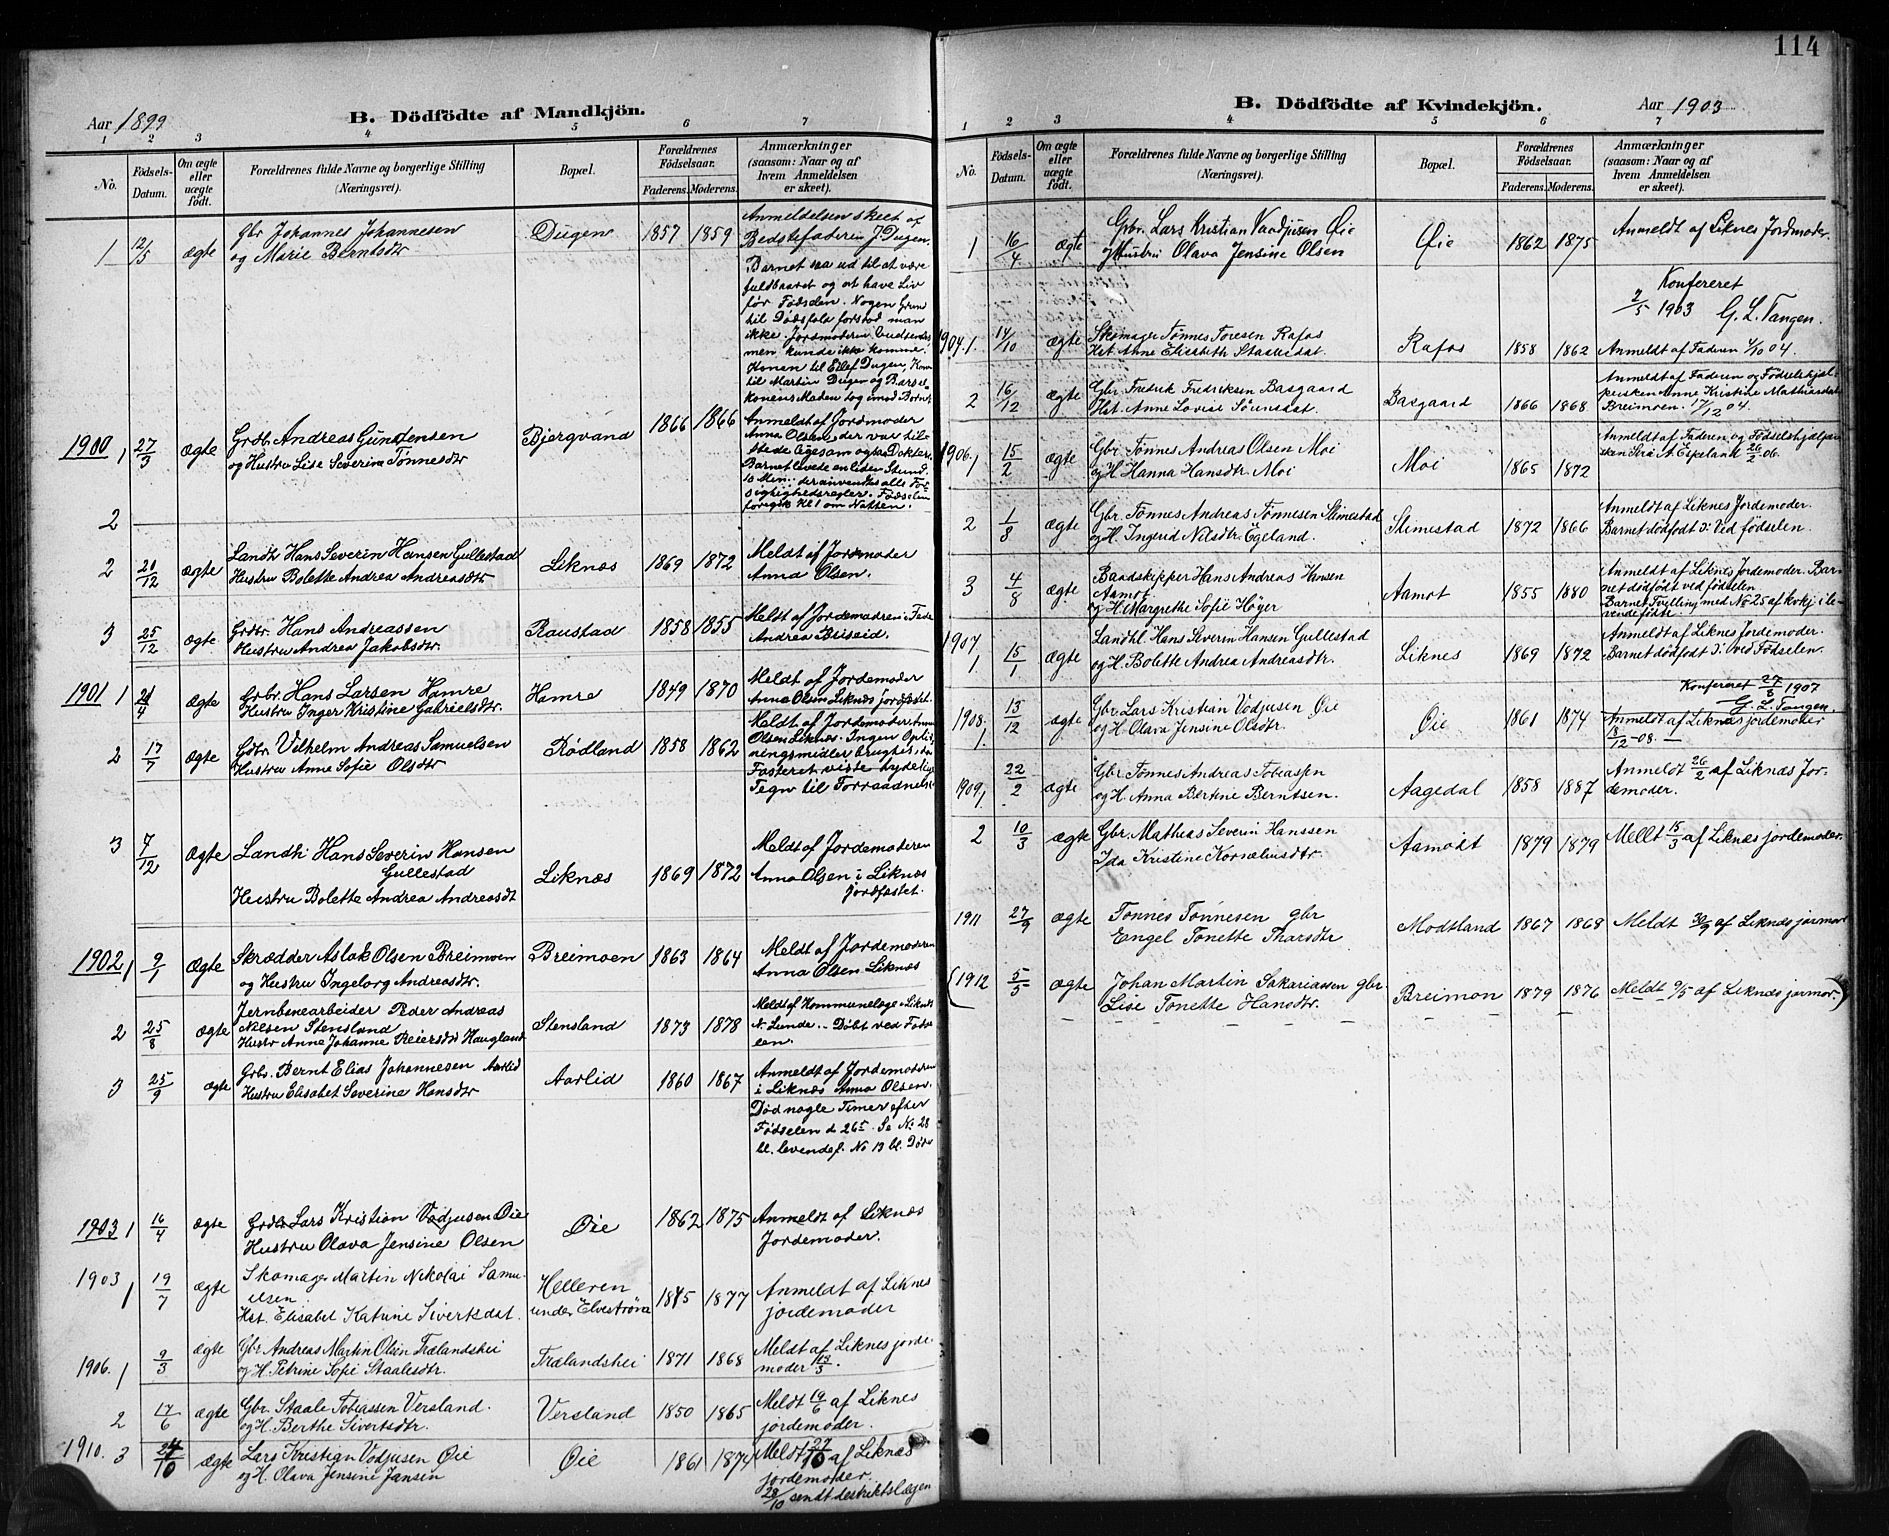 Aar 1899
B. Dödfödte af Mandkjön.
1 2 3 4 5 6 7
No.
Födsels-Datum.
Om ægte eller uægte födt.
Forældrenes fulde Navne og borgerlige Stilling (Næringsvei).
Bopæl.
Forældrenes Födselsaar.
Faderens. Moderens.
Anmærkninger (saasom: Naar og af hvem Anmeldelsen er skeet).
1 12/5 ægte Gbr Johannes Johannesen
og Marie Berntsdtr
Dugen 1857 1859
Anmeldelsen skeet af
Bedstefaderen J. Dugen.
Barnet saa ud til at være
fuldbaaret og at have Liv
før Fødslen. Nogen Grun
til Dødsfald forstod man
ikke. Jordmoderen
men kunde ikke komme.
Konen til Ellef Dugen, Kon
til Martin Dugen og Barsel
konens Moden tog imod Barnet
1900 1 27/3 ægte Grdbr Andreas Gundensen
og Hustru Lise Severine Tønnesdtr
Bjergvand 1866 1866
Anmeldt af Jordmoder
Anna Olsen, der var tile
stede ligesom ogsaa Dokter.
Barnet levede en liden Stund.
10 Min.: der anvendtes alle For
sigtighedsregler. Fødselen
foregik Kl 1 om Natten.
2
2 20/12 ægte Landh. Hans Severin Hansen Gullestad
Hustru Bolette Andrea Andreasdtr
Liknes 1869 1872
Meldt af Jordmoder
Anna Olsen.
3 25/12 ægte Grdbr. Hans Andreassen
Hustru Andrea Jakobsdtr
Raustad 1858 1855
Meldt af Jordemodren i Feda
Andrea Briseid.
1901 1 21/4 ægte Grbr. Hans Larsen Hamre
Hustru Inger Kristine Gabrielsdtr.
Hamre 1849 1870
Meldt af Jordemoder
Anna Olsen Liknæs jordfæstet.
2 17/7 ægte Gdbr. Vilhelm Andreas Samuelsen
Hustru Anne Sofie Olsdtr
Rødland 1858 1862
Meldt af Jordemoder Anna
Olsen Liknes. Ingen Opliv
ningsmidler brugtes, da
Fosteret viste tydelige
Tegn til Forraadnelse
3 7/12 ægte Landh. Hans Severin Hansen
Gullestad
Hustru Bolette Andrea Andreasdt
Liknæs 1869 1872
Meldt af Jordemoderen
Anna Olsen i Liknæs
Jordfæstet.
1902 1 9/1 ægte Skrædder Aslak Olsen Breimoen
og Hustru Ingeborg Andreasdtr.
Breimoen 1863 1864
Meldt af Jordemoderen
Anna Olsen Liknæs
2 25/8 ægte Jernbanearbeider Peder Andreas
Nilsen Stensland
Hustr Anne Johanne Reiersdtr Haugland
Stensland 1873 1878
Meldt af Kommunelæge i Liknæs
N. Lunde. Døbt ved Føds
len.
3 25/9 ægte Grbr. Bernt Elias Johannesen Aarlid
Hustru Elisabet Severine Hansdtr
Aarlid 1860 1867
Anmeldt af Jordemoderen
i Liknæs Anna Olsen.
Død nogle Timer efter
Fødselen d 26. Se No 28
bl. levendef. No 13 bl. Døde
1903 1 16/4 ægte Grdbr Lars Kristian Vodjusen Øie
Hustru Olava Jensine Olsen
Øie 1862 1875
Anmeldt af Liknæs
Jordemoder.
1903 1 19/7 ægte Skomager Martin Nikolai Samu-
elsen
Hst. Elisabet Katrine Sivertsdat.
Helleren
under Elvestrøm
1845 1877
Anmeldt af Liknæs
jordemoder
1906. 1 9/3 ægte Gbr Andreas Martin Olsen Trælandshei
og H. Petrine Sofie Staalesdtr.
Trælandshei 1871 1868
Meldt af Liknes jorde-
moder 13/3.
2 17/6 ægte Gbr. Staale Tobiassen Versland.
og H. Berthe Sivertsdtr.
Versland 1850 1865
Meldt 19/6 af Liknes
jordemoder.
1910. 3 24/10 ægte Lars Kristian Vodjusen Øie
og H. Olava Jensine Jansen
Øie 1861 1874
Meldt 27/10 af Liknæs
jordemoder.
28/10 sendt destriktslægen
114
B. Dödfödte af Kvindekjön.
Aar 1903
1 2 3 4 5 6 7
No.
Födsels-Datum.
Om ægte eller uægte födt.
Forældrenes fulde Navne og borgerlige Stilling (Næringsvei).
Bopæl.
Forældrenes Födselsaar.
Faderens. Moderens.
Anmærkninger (saasom: Naar og af hvem Anmeldelsen er skeet).
1 16/4 ægte Gbr. Lars Kristian Vaadjusen Øie
og Hustru Olava Jensine Olsen
Øie 1862 1875
Anmeldt af Liknes Jordmoder.
Konfereret
2/5 1903 G. L. Tangen.
1904. 1 14/10 ægte Skomager Tønnes Toresen Rafos
Hst. Anne Elisabeth Staalesdat.
Rafos 1858 1862
Anmeldt af Faderen /10 04.
2 16/12 ægte Gbr. Fredrik Fredriksen Basgaard
Hst. Anne Lovise Sørensdat.
Basgaard 1866 1868
Anmeldt af Faderen og Fødselshjæl-
persken Anne Kristine Mathiasdat
Breimoen. 17/12 04.
1906. 1 15/2 ægte Gbr. Tønnes Andreas Olsen Moi
og H. Hanna Hansdtr. Moi
Moi 1865 1872
Anmeldt af Faderen og Fødselshjælper
sken Siri A. Espeland 26/2 06.
2 1/8 ægte Gbr. Tønnes Andreas Tønnesen Slimestad
og H. Ingerid Nilsdtr. Egeland.
Slimestad 1872 1866
Anmeldt af Liknes Jordemoder.
Barnet dødfødt d: Ved fødselen.
3 4/8 ægte Baadskipper Hans Andreas Hansen
Aamot
og H. Margrethe Sofie Høyer
Aamot 1855 1880
Anmeldt af Liknes Jordemoder. Bar-
net dødfødt ved fødselen
Barnet Tvilling med No 25 af kvkj i le-
vendefødte.
1907. 1 15/1 ægte Landhl. Hans Severin Hansen Gullestad
og H. Bolette Andrea Andreasdtr.
Liknes 1869 1872
Anmeldt af Liknes Jordemoder.
Barnet dødfødt d: ved Fødselen.
Konfereret 27/8 1907
G. L. Tangen.
1908. 1. 13/12 ægte Gbr. Lars Kristian Vodjusen Øie
og H. Olava Jensine Olsdtr.
Øie 1861 1874
Anmeldt af Liknæs jordemoder
18/12 - 08. —
1909, 1 22/2 ægte Gbr. Tønnes Andreas Tobiassen
og H. Anna Bertine Berntsen.
Aagedal 1858 1887
Anmeldt 26/2 af Liknæs Jor-
demoder.
2 10/3 ægte Gbr. Mathias Severin Hanssen
Ida Kristine Korneliusdtr.
Aamodt 1879 1879
Meldt 15/3 af Liknes jordemoder.
1911 27/9 ægte Tønnes Tønnesen gbr
Engel Tonette Tharsdtr
Modtland 1867 1868
Meldt 30/9 af Liknæs jormor
(1912 5/5 ægte Johan Martin Sakariassen gbr.
Lise Tonette Hansdtr.
Breimon 1879 1876
Meldt 9/5 af Liknæs jormor.)